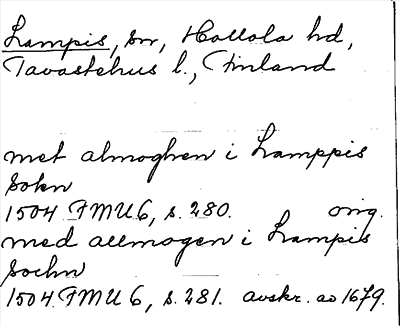 Lampis, sn, Hollola hd,
Tavastehus l., Finland
met almoghen i Lamppis
Sokn
1504 FMU 6, s. 280. orig.
med allmogen i Lampis
Sochn
1504 FMU 6, s. 281. avskr. ao 1679.